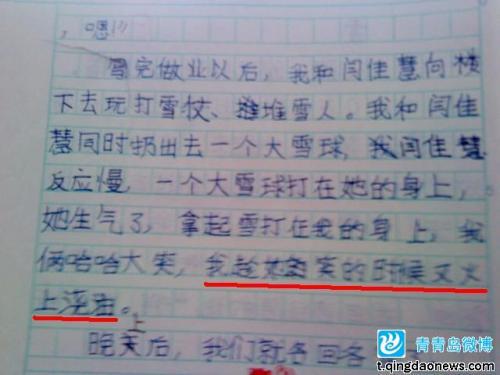 ，嗯！”
写完做业以后，我和闫佳慧向楼
下去玩打雪仗、堆堆雪人。我和闫佳
慧同时扔出去一个大雪球，我闫佳慧
反应慢，一个大雪球打在她的身上，
她生气了，拿起雪打在我的身上，我
俩哈哈大笑，我趁她笑的时候又火
上浇油。
上
晚天后，我们就各回各
青青岛微博
t.qingdaonews.com